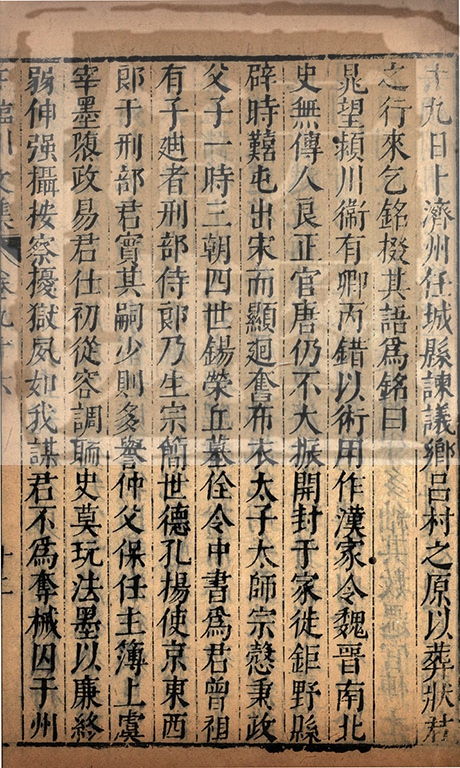 十九日十濟州任城縣諫議鄉呂村之原以葬狀君
之行來乞銘掇其語爲銘曰
晁望潁川衞有卿丙錯以術用作漢家令魏晉南北
史無傳人良正官唐仍不大振開封于家徙鉅野縣
辟時囏屯出宋而顯迥奮布衣太子太師宗慤秉政
父子一時三朝四世錫榮丘墓佺令中書爲君曾祖
有子迪者刑部侍郎乃生宗簡世德孔揚使京東西
郎于刑部君實其嗣少則多譽仲父保任主簿上虞
宰墨隳政易君仕初從容調聏史莫玩法墨以廉終
弱伸强攝按察擾獄夙如我謀君不爲奪械囚于州
臨川文集 卷九十六 十二